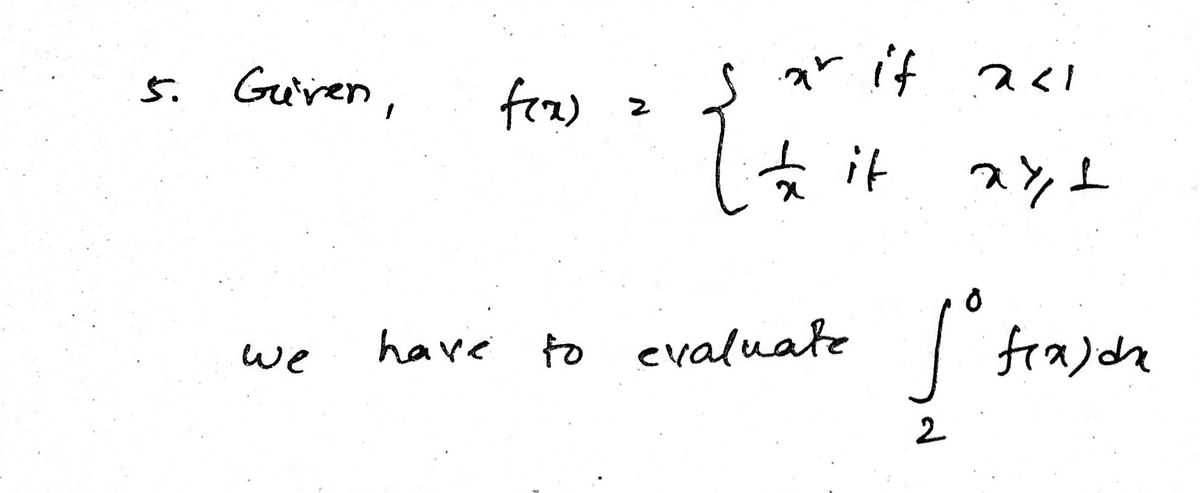 5. Given, f(x) = { x² if x < 1
1/x if x ≥ 1
we have to evaluate ∫₂⁰ f(x) dx